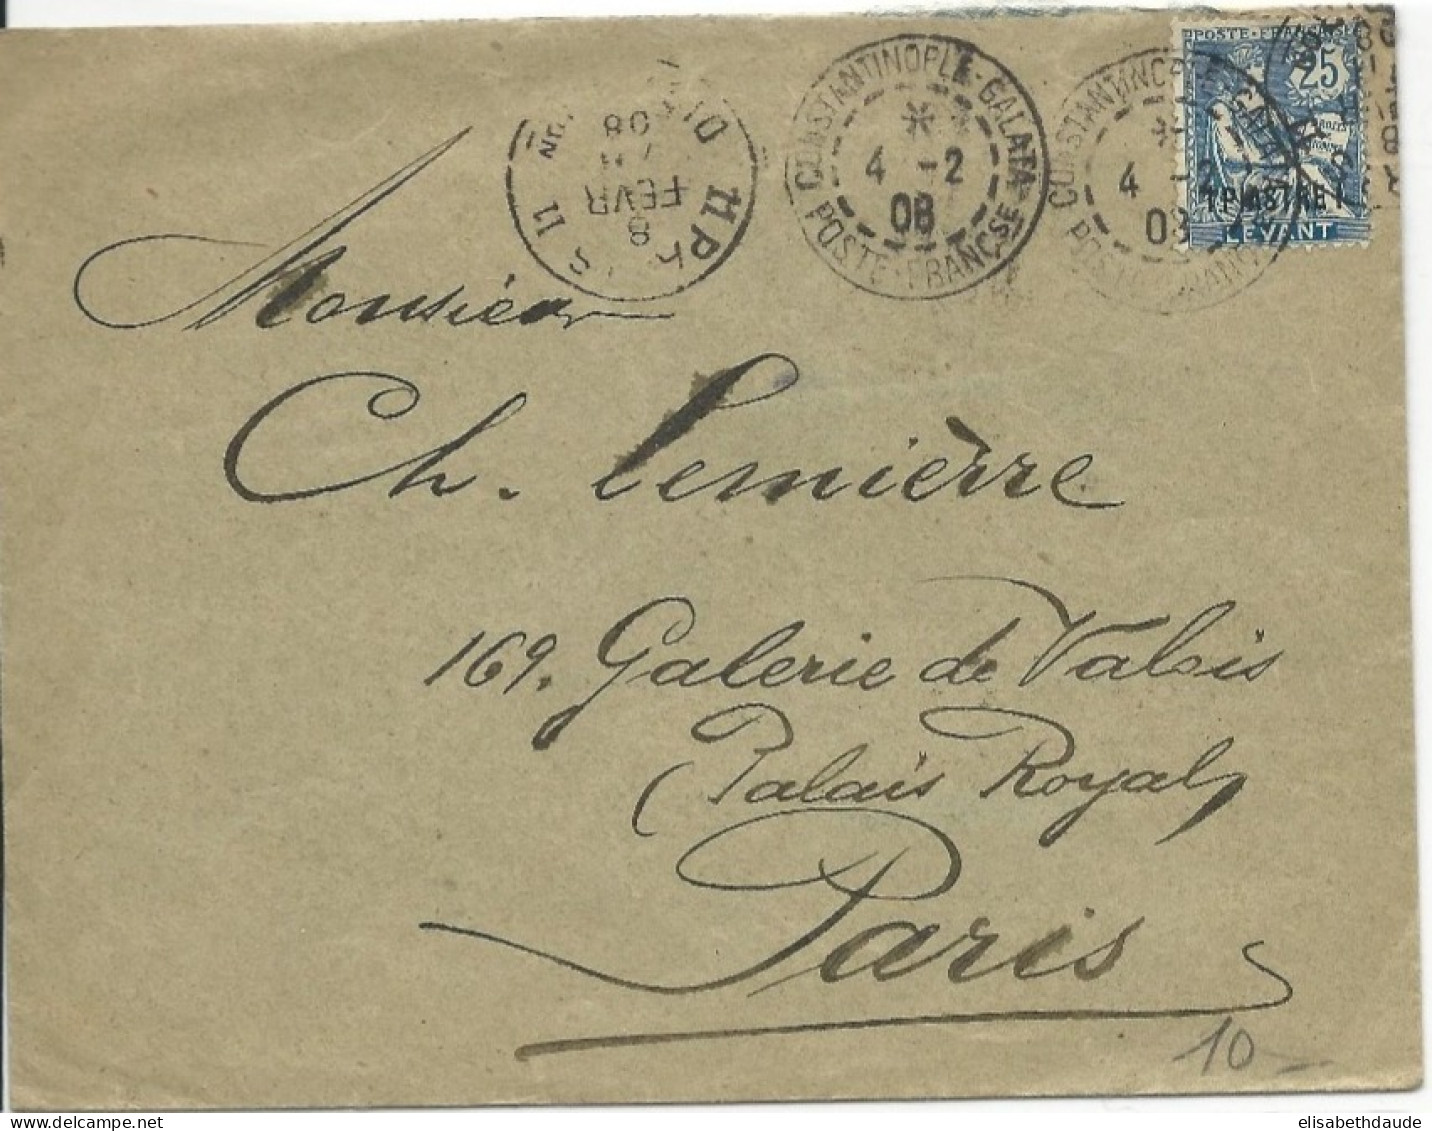 CONSTANTINOPLE-GALATA
4 -2
08
POSTE FRANÇSE
CONSTANTINOPLE-GALATA
4 -2
08
POSTE FRANÇSE
POSTE FRANÇAISE
25
1 PIASTRE 1
LEVANT
PARIS 11
8
FEVR
08
Monsieur
Ch. Lemièrre
169. Galerie de Valois
(Palais Royal)
Paris
10
elisabethdaude